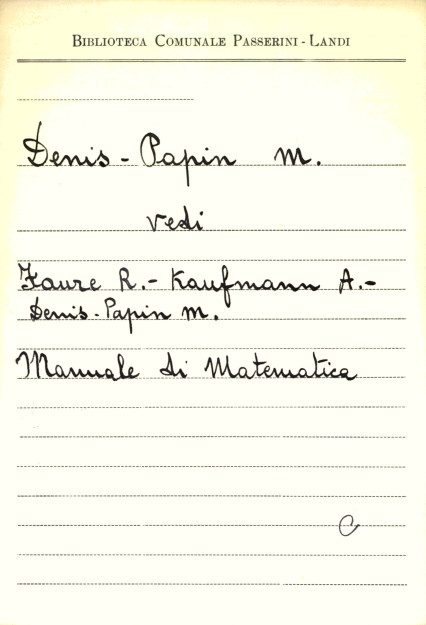 BIBLIOTECA COMUNALE PASSERINI - LANDI
Denis - Papin M.
vedi
Faure R. - Kaufmann A. -
Denis - Papin M.
Manuale di Matematica
C